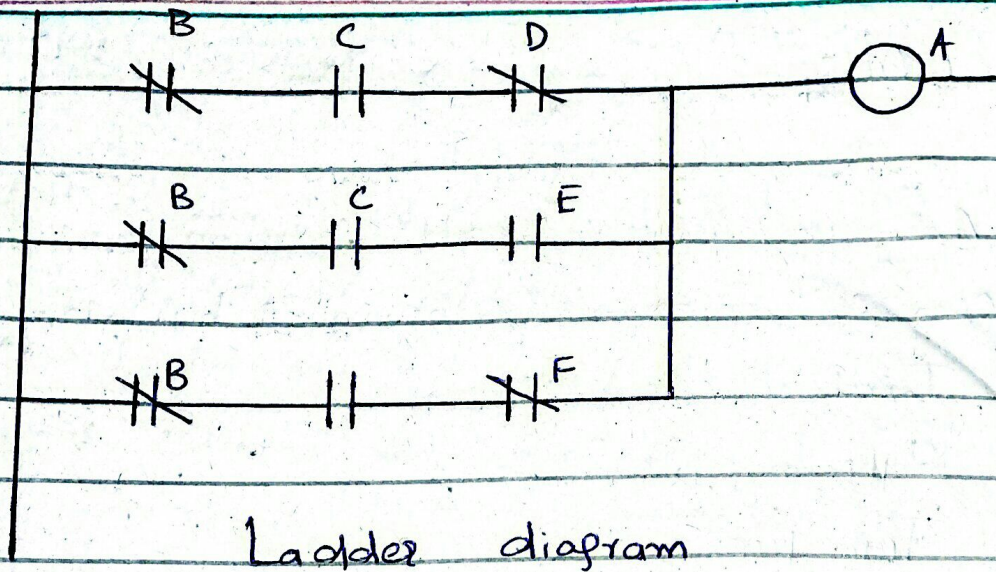 B C D A
B C E
B F
Ladder diagram